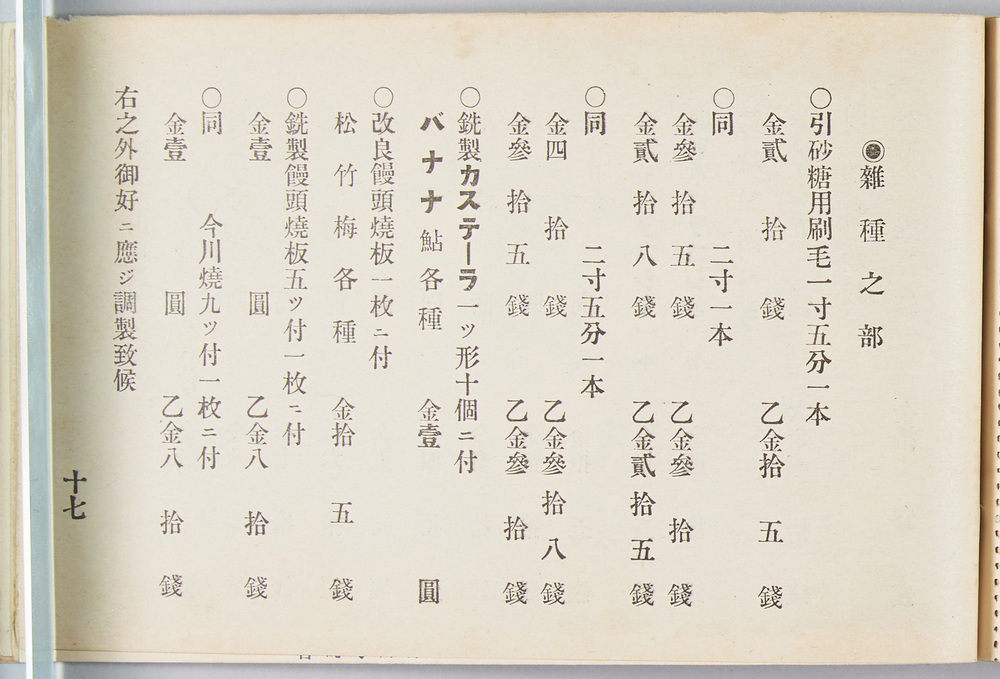 ◉雜種之部
○引砂糖用刷毛一寸五分一本
金貳拾錢 乙金拾五錢
○同 二寸一本
金參拾五錢 乙金參拾錢
金貳拾八錢 乙金貳拾五錢
○同 二寸五分一本
金四拾錢 乙金參拾八錢
金參拾五錢 乙金參拾錢
○銑製カステーラ一ッ形十個ニ付
バナナ鮎各種 金壹圓
○改良饅頭燒板一枚ニ付
松竹梅各種 金拾五錢
○銑製饅頭燒板五ッ付一枚ニ付
金壹圓 乙金八拾錢
○同 今川燒九ッ付一枚ニ付
金壹圓 乙金八拾錢
右之外御好ニ應ジ調製致候
十七